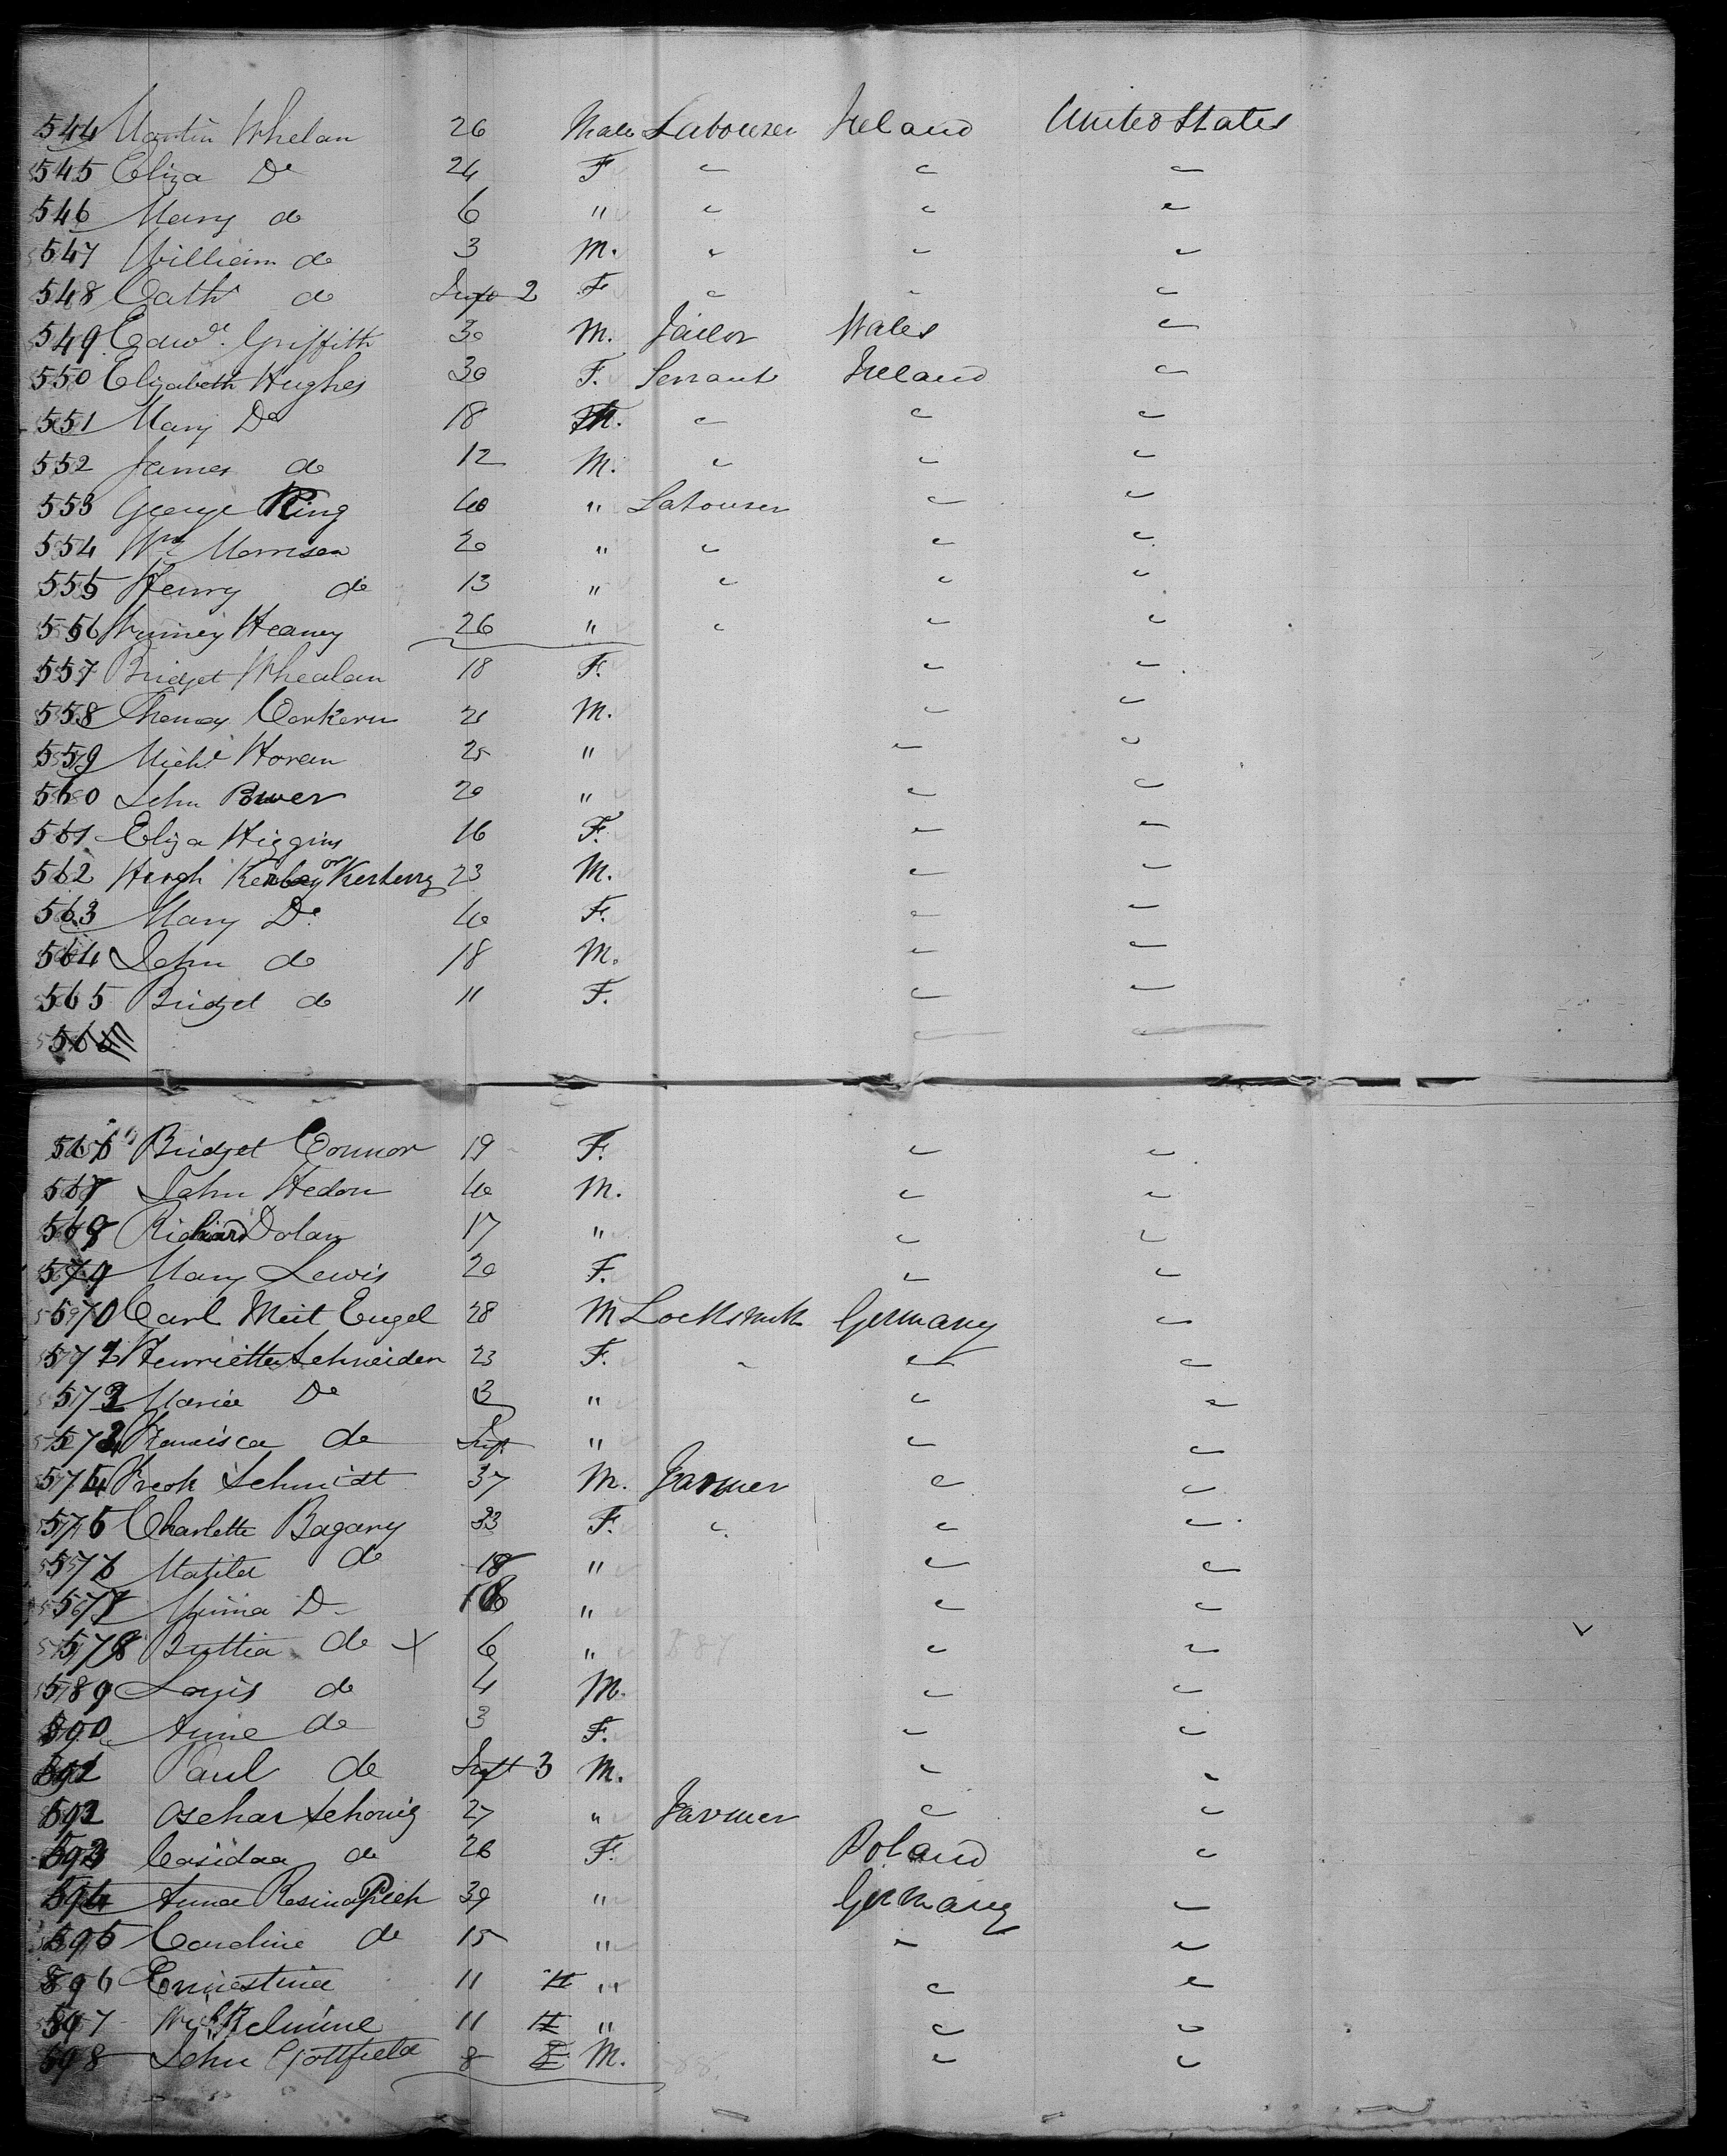 544 Martin Whelan 26 Male Labourer Ireland United States
545 Eliza Do 24 F " " "
546 Mary do 6 " " " "
547 William do 3 M. " " "
548 Cathe do Inft 2 F " " "
549 Edwd. Griffith 30 M. Tailor Wales "
550 Elizabeth Hughes 30 F. Servant Ireland "
551 Mary Do 18 " " "
552 James do 12 M. " " "
553 George King 40 " Labourer " "
554 Wm Morrison 20 " " " "
555 Henry do 13 " " " "
556 Winney Heaney 26 " " " "
557 Bridget Whealan 18 F. " "
558 Thomas Corkern 21 M. " "
559 Michl Horan 25 " " "
560 John 20 " " "
561 Eliza Higgins 16 F. " "
562 Hugh or Kerberry 23 M. " "
563 Mary Do 40 F. " "
564 John do 18 M. " "
565 Bridget do 11 F. " "
" "
Bridget Connor 19 F. " "
John Hedon 40 M. " "
Richard Dolan 17 " " "
Mary Lewis 20 F. " "
570 Carl Meit Engel 28 M Locksmith Germany "
Henrietta Schneider 23 F. " " "
Maria Do 3 " " "
Francisca do Inft " " "
Fredk Schmidt 37 M. Farmer " "
Charlotte Bagany 33 F. " " "
Matilda do 18 " " "
Minna Do " " "
578 do X 6 " " "
589 Louis do 4 M. " "
590 Anne do 3 F. " "
591 Paul do Inft 3 M. " "
592 Oschar Schonig 27 " Farmer " "
593 Casidaa do 26 F. Poland "
594 Anna Rosina 39 " Germany "
595 Caroline do 15 " " "
596 Ernestina 11 " " "
597 Wilhelmine 11 " " "
598 John Gottfield 8 M. " "